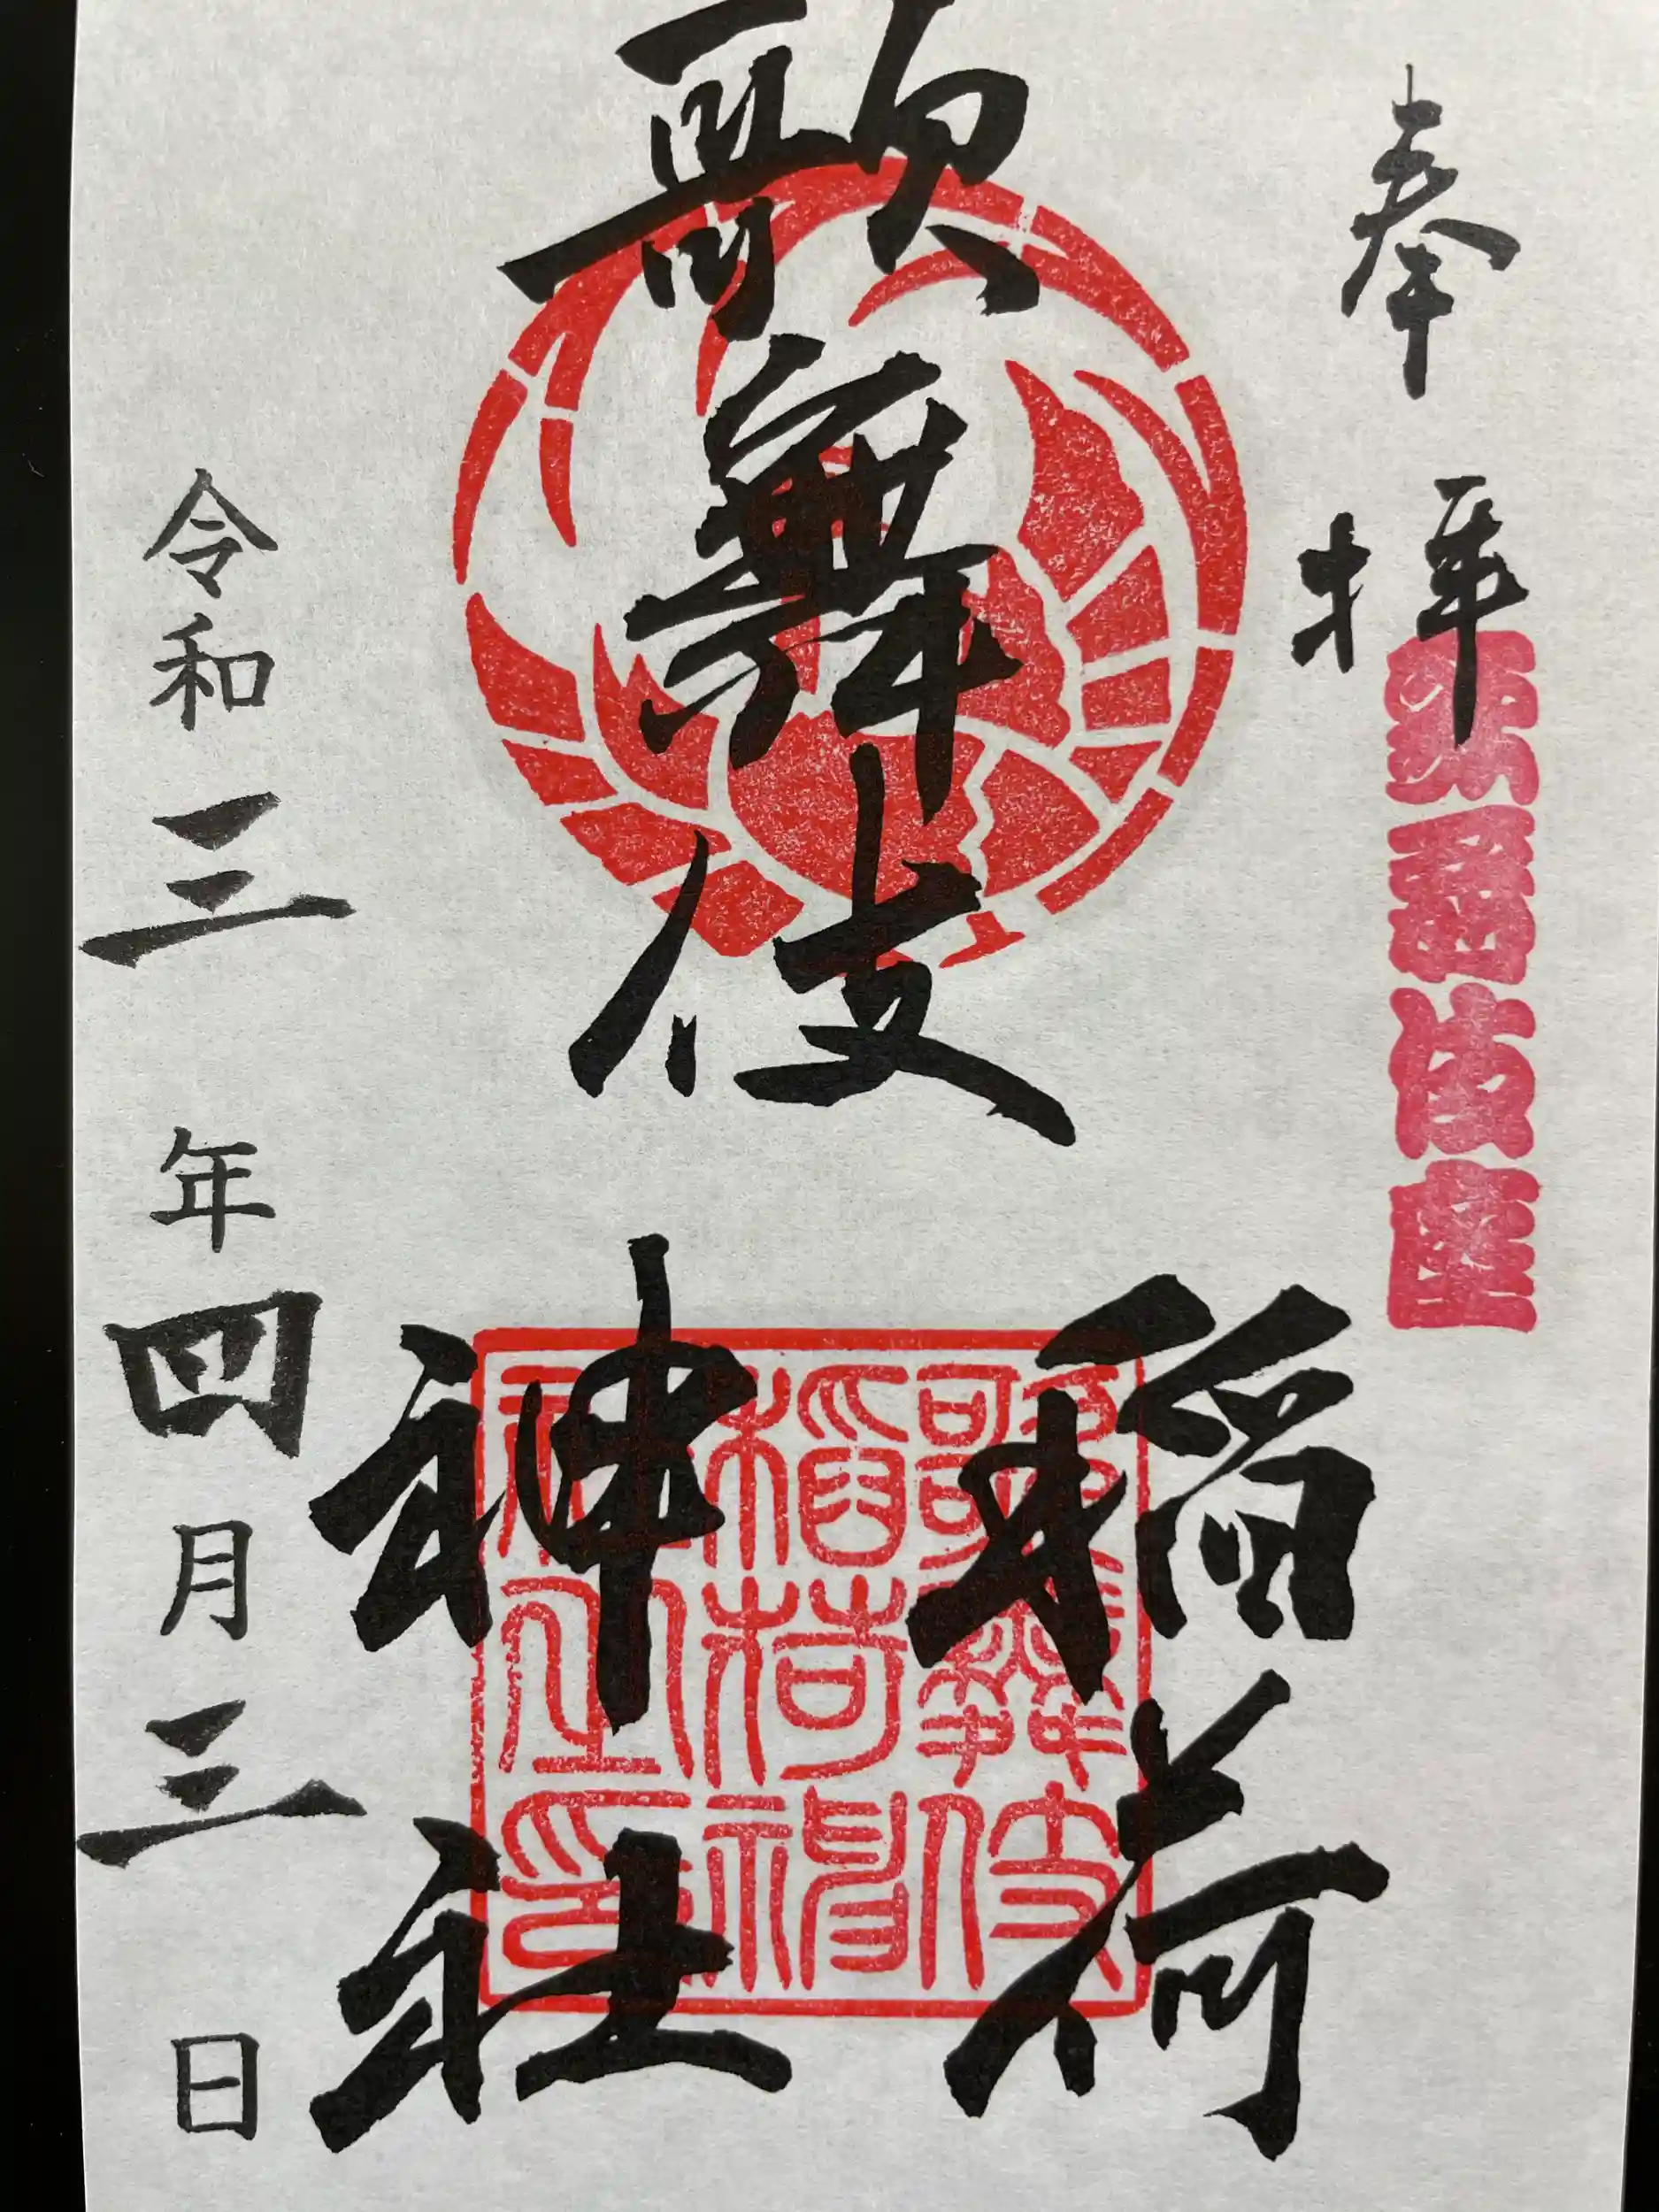 奉拝
歌舞伎座
歌舞伎
稲荷
神社
歌舞伎
稲荷神
社之印
令和三年四月三日